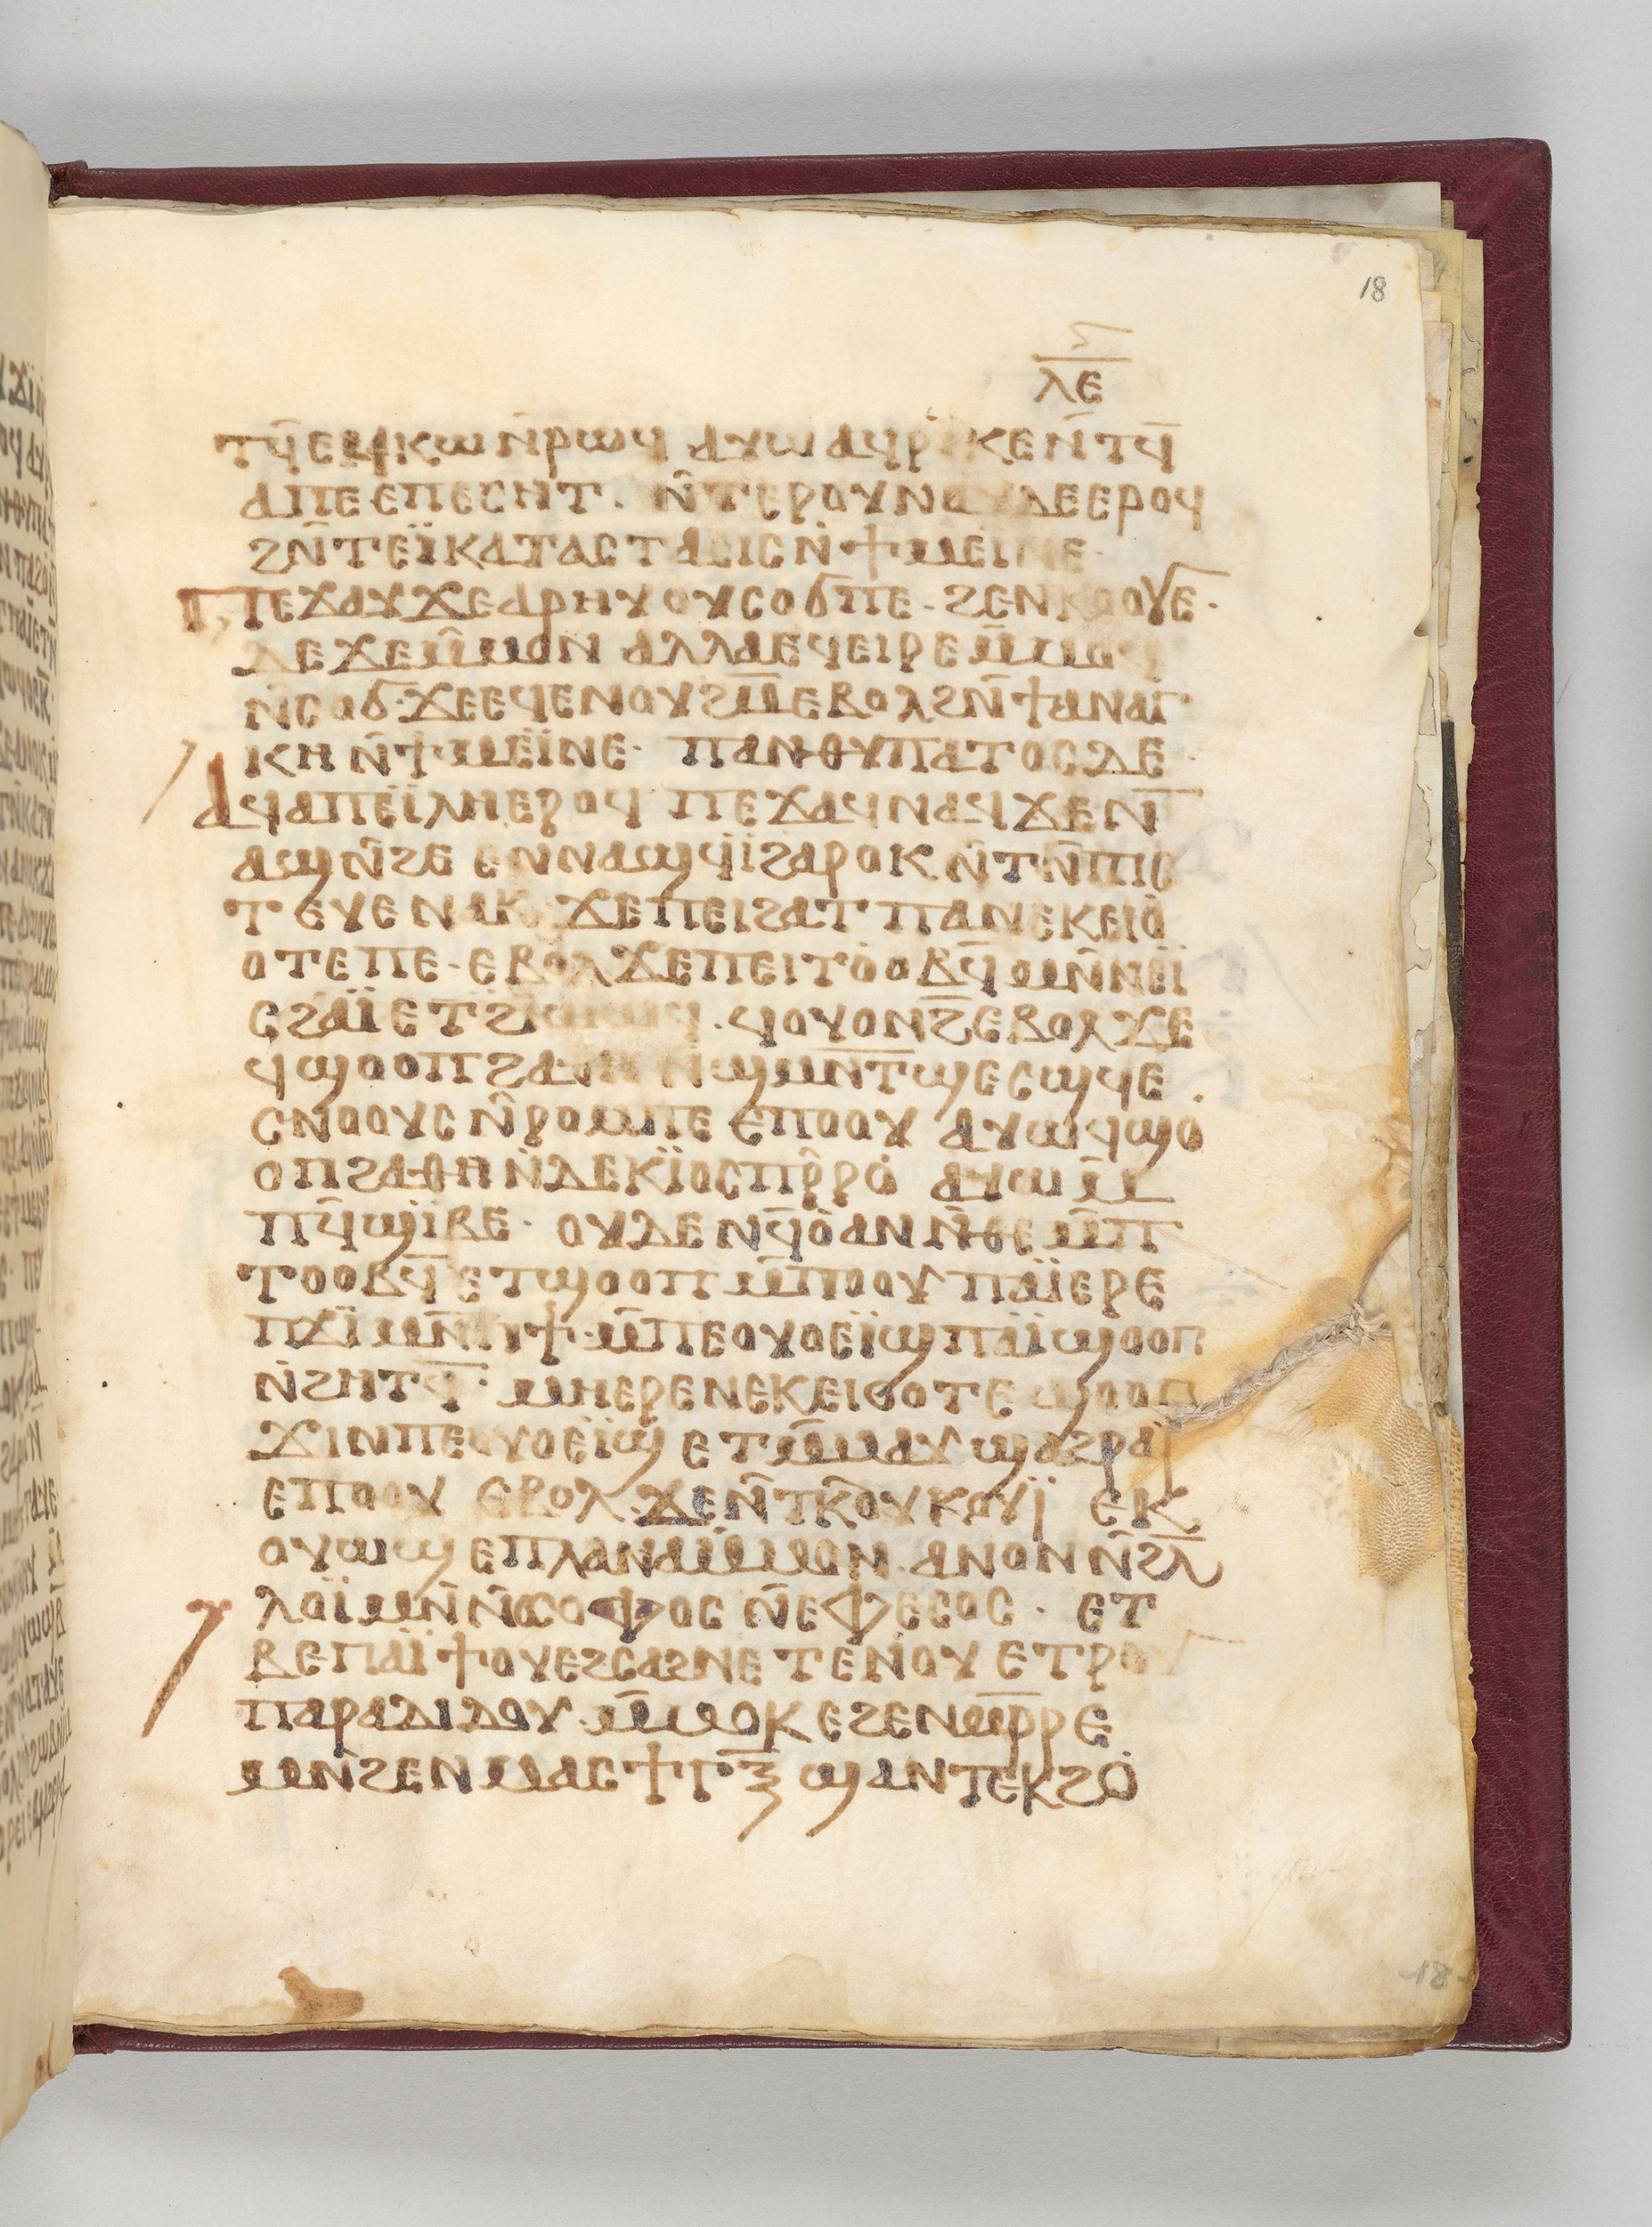 18
ⲗⲉ
ⲧϥ̄ⲉϥⲕⲱⲛ̄ⲣⲱϥ ⲁⲩⲱ ⲁϥⲣⲓⲕⲉⲛ̄ⲧϥ̄
ⲁⲡⲉ ⲉⲡⲉⲥⲏⲧ · ⲛ̄ⲧⲉⲣⲟⲩⲛⲁⲩⲇⲉⲉⲣⲟϥ
ϩⲛ̄ⲧⲉⲓ̈ⲕⲁⲧⲁⲥⲧⲁⲥⲓⲥ ⲛ̄ϯⲙⲉⲓⲛⲉ·
ⲡⲉϫⲁⲩϫⲉⲁⲣⲏⲩ ⲟⲩⲥⲟϭⲡⲉ · ϩⲉⲛⲕⲟⲟⲩⲉ·
ⲇⲉϫⲉⲙ̄ⲙⲟⲛ ⲁⲗⲗⲁⲉϥⲉⲓⲣⲉ ⲙ̄ⲙⲟϥ
ⲛ̄ⲥⲟϭ· ϫⲉⲉϥⲉⲛⲟⲩϩⲙ̄ ⲉⲃⲟⲗϩⲛ̄ϯⲁⲛⲁⲅ
ⲕⲏ ⲛ̄ϯⲙⲉⲓ̈ⲛⲉ· ⲡⲁⲛⲑⲩⲡⲁⲧⲟⲥⲇⲉ·
ⲁϥⲁⲡⲉⲓ̈ⲗⲏⲉⲣⲟϥ ⲡⲉϫⲁϥⲛⲁϥ ϫⲉⲛ̄
ⲁϣⲛ̄ϩⲉ ⲉⲛⲛⲁϣϥⲓ̈ϩⲁⲣⲟⲕ ⲛ̄ⲧⲛ̄ⲡⲓⲥ
ⲧⲉⲩⲉ ⲛⲁⲕ ϫⲉⲡⲉⲓϩⲁⲧ ⲡⲁⲛⲉⲕⲉⲓⲟ
ⲟⲧⲉⲡⲉ · ⲉⲃⲟⲗ ϫⲉⲡⲉⲓⲧⲟⲟⲃϥ̄ ⲙⲛ̄ⲛⲉⲓ̈
ⲥϩⲁⲓ̈ ⲉⲧϩⲓⲱⲱϥ · ϥⲟⲩⲟⲛϩ̄ ⲉⲃⲟⲗ ϫⲉ
ϥϣⲟⲟⲡ ϩⲁⲑⲏ ⲛ̄ϣⲙⲛ̄ⲧϣⲉⲥϣϥⲉ
ⲥⲛⲟⲟⲩⲥ ⲛ̄ⲣⲟⲙⲡⲉ ⲉⲡⲟⲟⲩ ⲁⲩⲱϥϣⲟ
ⲟⲡϩⲁⲑⲏ ⲛ̄ⲇⲉⲕⲓ̈ⲟⲥⲡⲣ̄ⲣⲟ ⲁⲩⲱ ⲙ̄
ⲡϥ̄ϣⲓ̈ⲃⲉ · ⲟⲩⲇⲉ ⲛϥ̄ⲟ ⲁⲛ ⲛ̄ⲑⲉ ⲙ̄ⲡ
ⲧⲟⲟⲃϥ̄ ⲉⲧϣⲟⲟⲡ ⲙ̄ⲡⲟⲟⲩ ⲡⲁⲓ̈ⲉⲣⲉ
ⲡϫⲓ̈ ⲙⲛ̄ⲡϯ· ⲙ̄ⲡⲉⲟⲩⲟⲉⲓ̈ϣ ⲡⲁⲓ̈ϣⲟⲟⲡ
ⲛ̄ϩⲏⲧϥ̄· ⲙⲏⲉⲣⲉⲛⲉⲕⲉⲓⲟⲟⲧⲉ ϣⲟⲟⲡ
ϫⲓⲛⲡⲉⲟⲩⲟⲉⲓ̈ϣ ⲉⲧⲙ̄ⲙⲁⲩ ϣⲁϩⲣⲁⲓ̈
ⲉⲡⲟⲟⲩ ⲉⲃⲟⲗ ϫⲉⲛ̄ⲧⲕ̄ⲟⲩⲕⲟⲩⲓ̈ ⲉⲕ
ⲟⲩⲱϣ ⲉⲡⲗⲁⲛⲁⲙ̄ⲙⲟⲛ ⲁⲛⲟⲛ ⲛ̄ϩⲗ̄
ⲗⲟⲓ̈ ⲙⲛ̄ ⲛ̄ⲥⲟⲫⲟⲥ ⲛ̄ⲉⲫⲉⲥⲟⲥ · ⲉⲧ
ⲃⲉⲡⲁⲓ̈ ϯⲟⲩⲉϩⲥⲁϩⲛⲉ ⲧⲉⲛⲟⲩ ⲉⲧⲣⲟⲩ
ⲡⲁⲣⲁⲇⲓⲇⲟⲩ ⲙ̄ⲙⲟⲕ ⲉϩⲉⲛⲙⲣ̄ⲣⲉ
ⲙⲛ̄ϩⲉⲛⲙⲁⲥϯⲅⲝ̄ ϣⲁⲛⲧⲉⲕϩⲟ
18